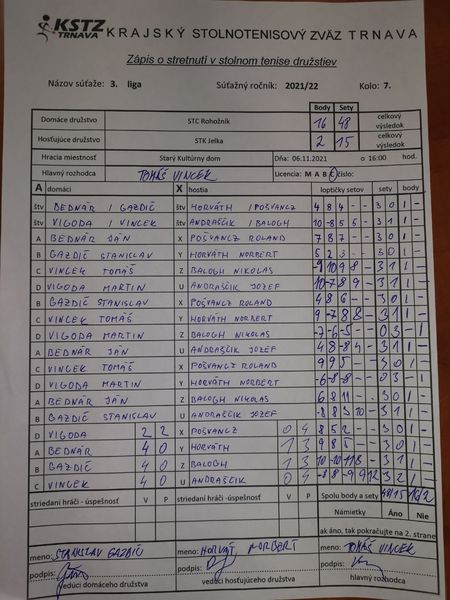 KSTZ TRNAVA KRAJSKÝ STOLNOTENISOVÝ ZVÄZ TRNAVA
Zápis o stretnutí v stolnom tenise družstiev
Názov súťaže: 3. liga Súťažný ročník: 2021/22 Kolo: 7.
Body Sety
Domáce družstvo STC Rohožník 16 48 celkový výsledok
Hosťujúce družstvo STK Jelka 2 15 celkový výsledok
Hracia miestnosť Starý Kultúrny dom Dňa: 06.11.2021 o 16:00 hod.
Hlavný rozhodca TOMÁŠ VINCEK Licencia: M A B C číslo:
A domáci X hostia loptičky setov sety body
štv BEDNÁR / GAZDIČ štv HORVÁTH / POŠVANCZ 4 8 4 - - 3 0 1 -
štv VIGODA / VINCEK štv ANDRAŠČIK / BALOGH 10 -8 5 5 - 3 1 1 -
A BEDNÁR JÁN X POŠVANCZ ROLAND 7 8 7 - - 3 0 1 -
B GAZDIČ STANISLAV Y HORVÁTH NORBERT 5 2 3 - - 3 0 1 -
C VINCEK TOMÁŠ Z BALOGH NIKOLAS -9 10 9 8 - 3 1 1 -
D VIGODA MARTIN U ANDRAŠČIK JOZEF 10 -7 8 9 - 3 1 1 -
B GAZDIČ STANISLAV X POŠVANCZ ROLAND 4 8 6 - - 3 0 1 -
C VINCEK TOMÁŠ Y HORVÁTH NORBERT 9 -7 8 8 - 3 1 1 -
D VIGODA MARTIN Z BALOGH NIKOLAS -7 -6 -5 - - 0 3 - 1
A BEDNÁR JÁN U ANDRAŠČIK JOZEF 4 8 -8 4 - 3 1 1 -
C VINCEK TOMÁŠ X POŠVANCZ ROLAND 9 9 5 - - 3 0 1 -
D VIGODA MARTIN Y HORVÁTH NORBERT -6 -8 -8 - - 0 3 - 1
A BEDNÁR JÁN Z BALOGH NIKOLAS 6 8 11 - - 3 0 1 -
B GAZDIČ STANISLAV U ANDRAŠČIK JOZEF -8 8 3 10 - 3 1 1 -
D VIGODA 2 2 X POŠVANCZ 0 4 8 5 2 - - 3 0 1 -
A BEDNÁR 4 0 Y HORVÁTH 1 3 9 8 5 - - 3 0 1 -
B GAZDIČ 4 0 Z BALOGH 1 3 10 -10 11 8 - 3 1 1 -
C VINCEK 4 0 U ANDRAŠČIK 0 4 -8 8 -9 9 12 3 2 1 -
striedaní hráči - úspešnosť V P striedaní hráči - úspešnosť V P Spolu body a sety 48/15 16/2
Námietky Áno Nie
ak áno, tak pokračujte na 2. strane
meno: STANISLAV GAZDIČ meno: HORVÁT NORBERT meno: TOMÁŠ VINCEK
podpis: podpis: podpis:
vedúci domáceho družstva vedúci hosťujúceho družstva hlavný rozhodca